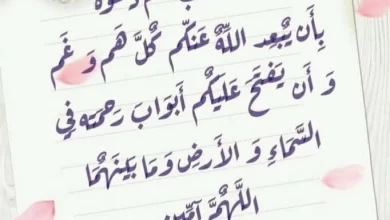 بِأَن يُبْعِد اللَّهُ عَنكُم كُلَّ هَم وَ غَم
وَ أَن يَفْتَحَ عَلَيكُم أَبْوَابَ رَحمَته فِي
السَّمَاءِ وَ الأَرضِ وَ مَا بَينَهُمَا
اللَّهُمَّ آمِّين